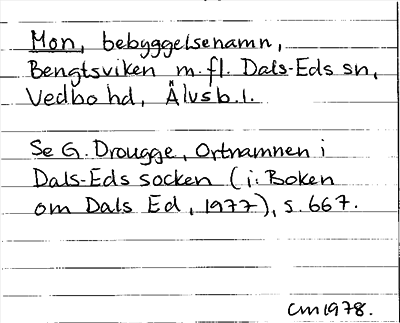 Mon, bebyggelsenamn,
Bengtsviken m.fl. Dals-Eds sn,
Vedbo hd, Älvsb.l.
Se G. Drougge, Ortnamnen i
Dals-Eds socken (i: Boken
om Dals Ed, 1977), s. 667.
CM 1978.